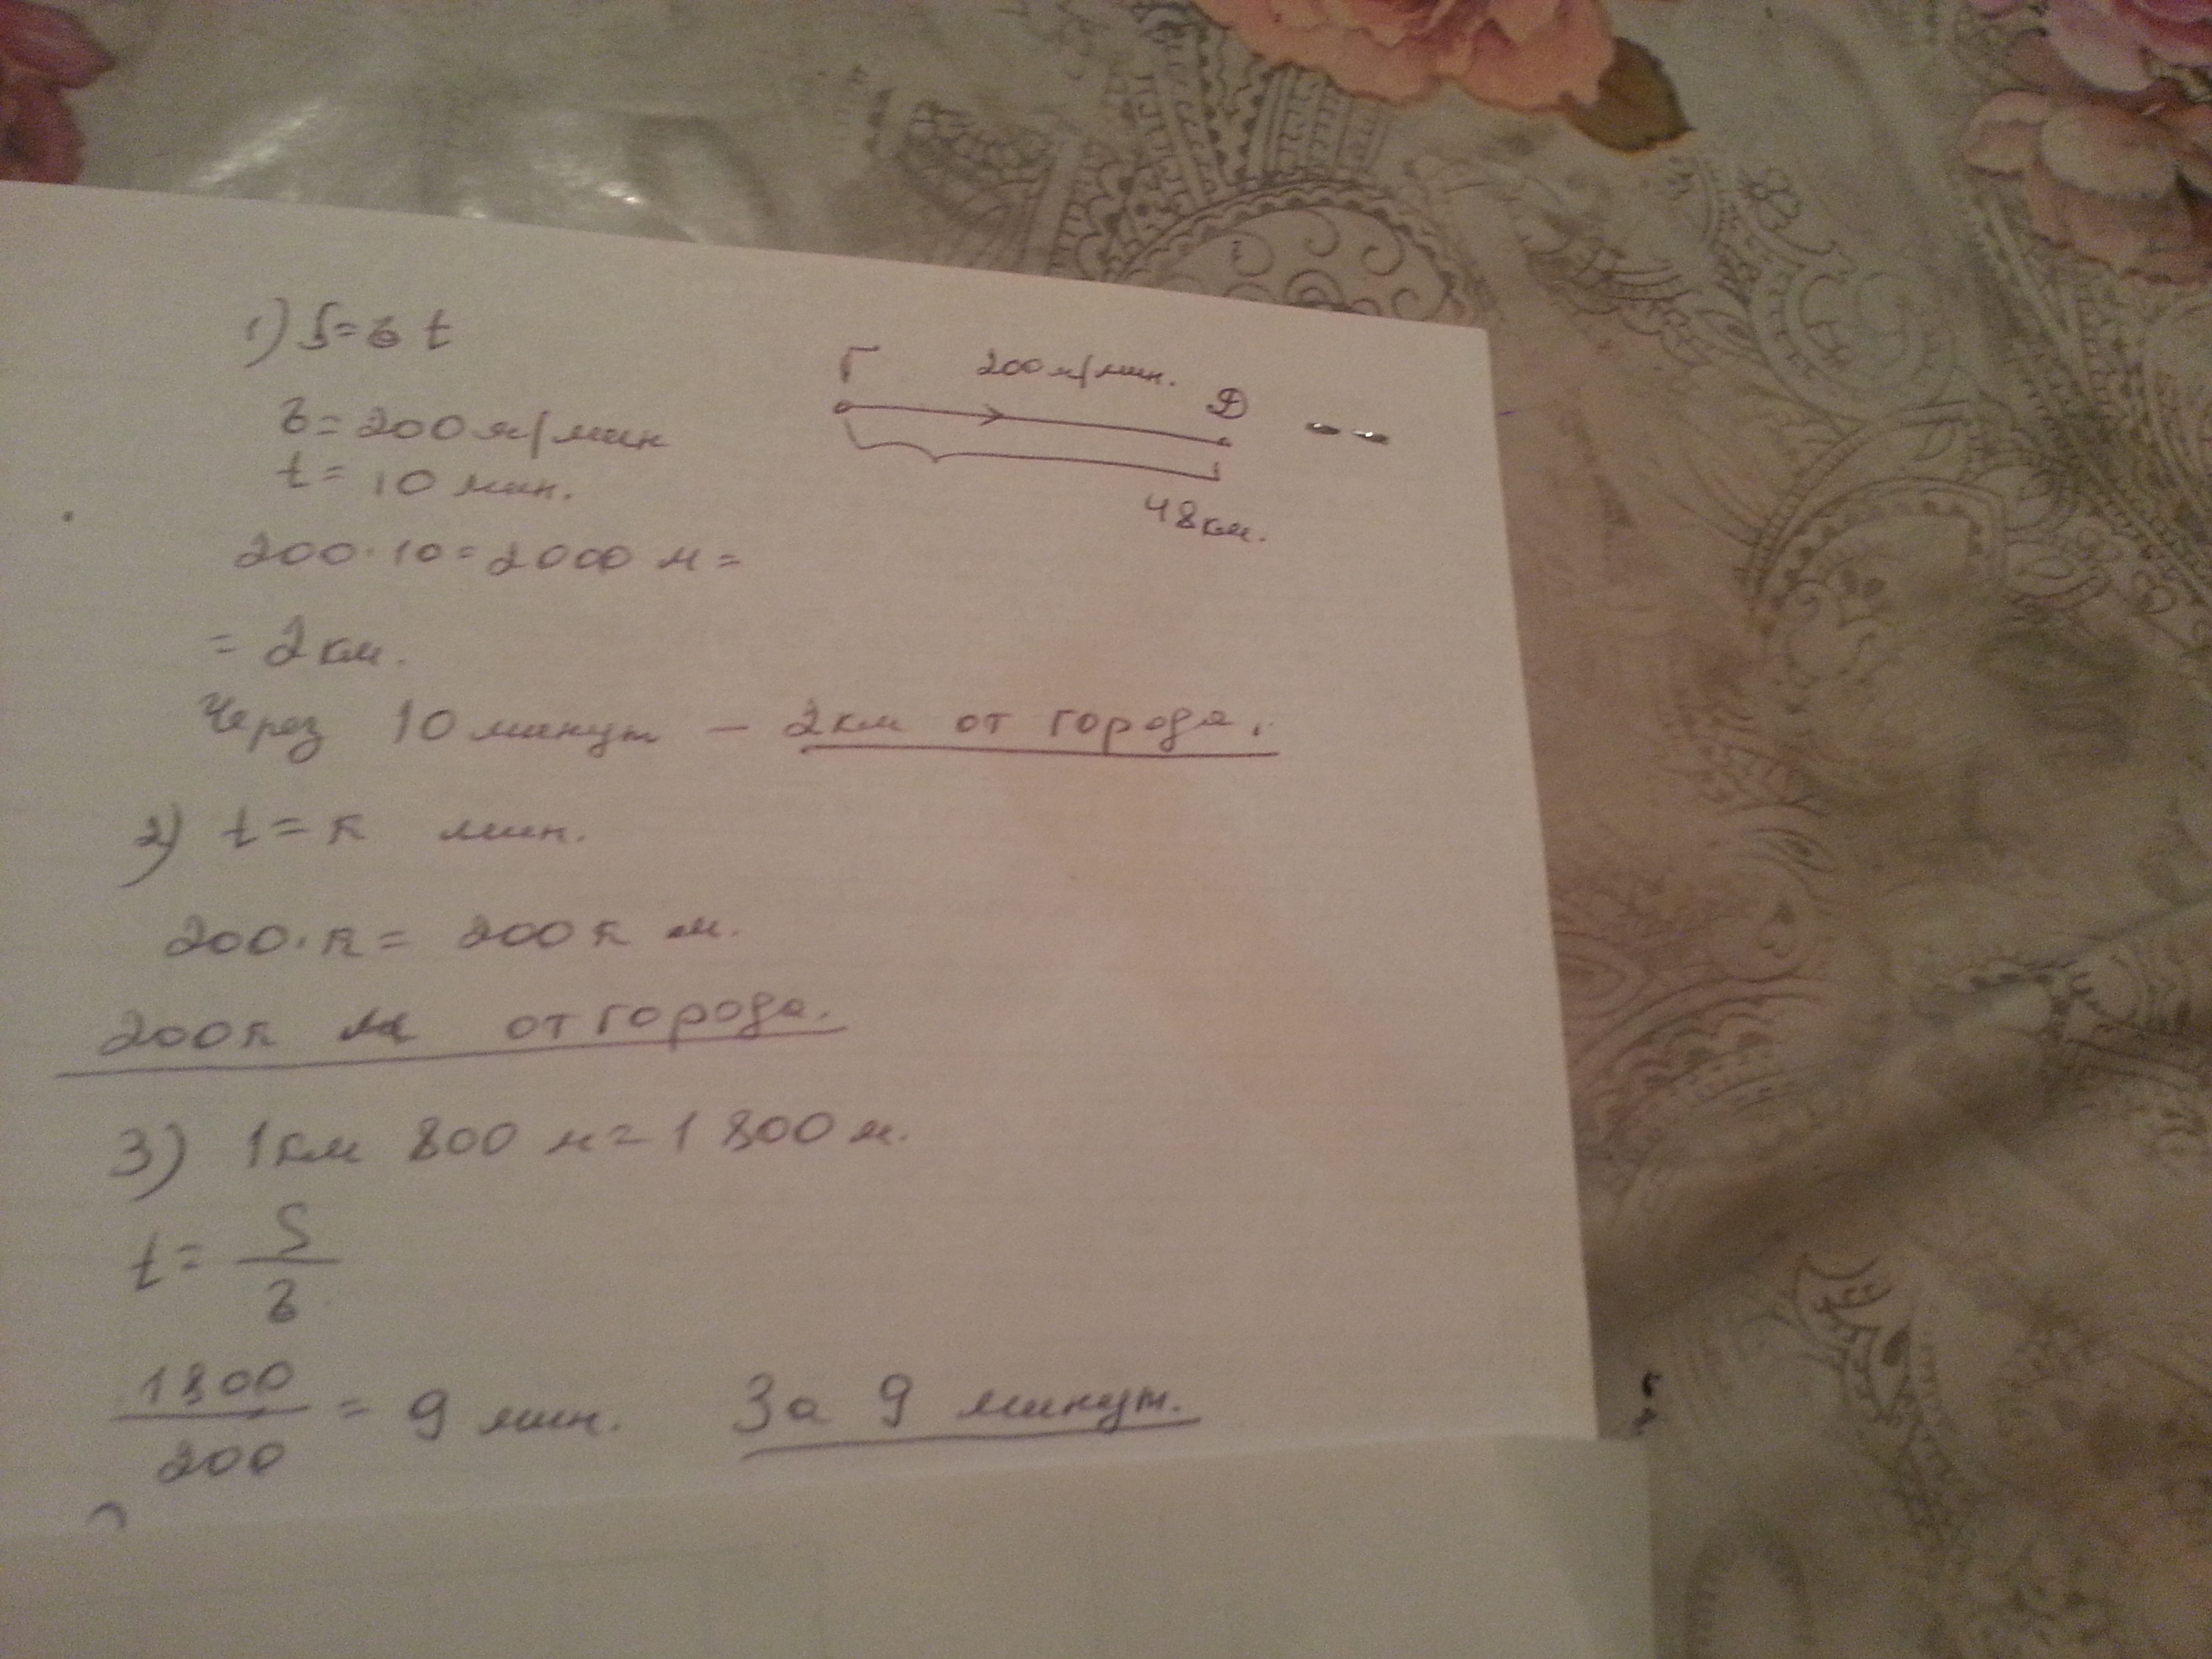 1) S=в t
Г 200 м/мин. D
в=200 м/мин
t= 10 мин.
48км.
200·10=2000 м=
= 2км.
Через 10 минут – 2км от города.
2) t=к мин.
200·к= 200к м.
200к м от города.
3) 1км 800 м=1800м.
t= S/в
1800/200 = 9 мин. За 9 минут.